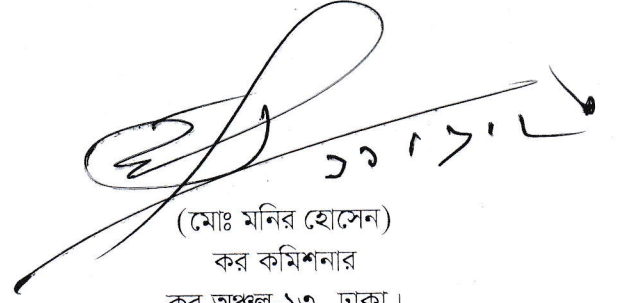 (মোঃ মনির হোসেন)
কর কমিশনার
কর অঞ্চল ১৩, ঢাকা।